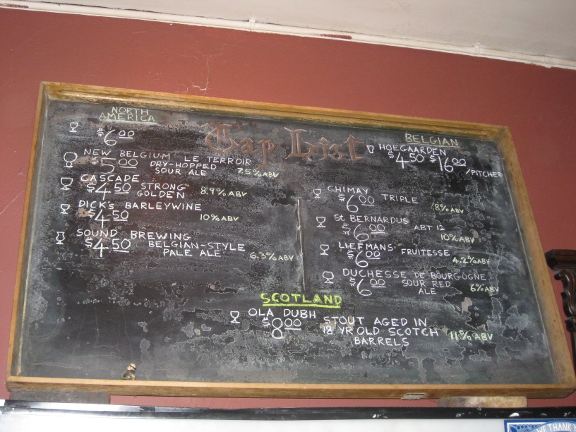 Tap List
NORTH
AMERICA
$6.00
NEW BELGIUM LE TERROIR
$5.00 DRY-HOPPED
SOUR ALE 7.5% ABV
CASCADE
$4.50 STRONG
GOLDEN 8.4% ABV
DICK'S BARLEYWINE
$4.50 10% ABV
SOUND BREWING
$4.50 BELGIAN-STYLE
PALE ALE 6.3% ABV
BELGIAN
HOEGAARDEN
$4.50 $16.00
/PITCHER
CHIMAY
$6.00 TRIPLE 8% ABV
ST BERNARDUS
$6.00 ABT 12
10% ABV
LIEFMANS
$6.00 FRUITESSE 4.2% ABV
DUCHESSE DE BOURGOGNE
$6.00 SOUR RED
ALE 6% ABV
SCOTLAND
OLA DUBH
$8.00 STOUT AGED IN
18 YR OLD SCOTCH
BARRELS
THANK